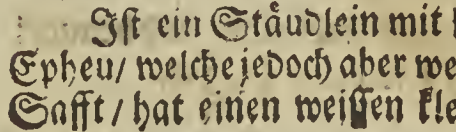 Iſt ein Stäudlein mit
Epheu/ welche jedoch aber we
Safft/ hat einen weiſſen kle